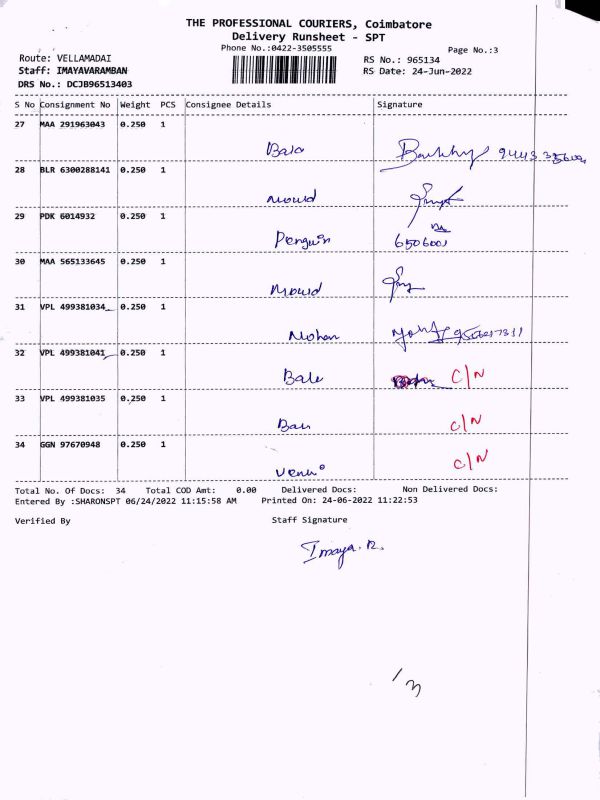 THE PROFESSIONAL COURIERS, Coimbatore
Delivery Runsheet - SPT
Phone No.:0422-3505555
Page No.:3
Route: VELLAMADAI
RS No.: 965134
Staff: IMAYAVARAMBAN
RS Date: 24-Jun-2022
DRS No.: DCJB96513403
S No Consignment No Weight PCS Consignee Details Signature
27 MAA 291963043 0.250 1
Bala
28 BLR 6300288141 0.250 1
Mould
29 PDK 6014932 0.250 1
Penguin 6506001
30 MAA 565133645 0.250 1
Mould
31 VPL 499381034 0.250 1
Mohan
32 VPL 499381041 0.250 1
Bale C/N
33 VPL 499381035 0.250 1
C/N
34 GGN 97670948 0.250 1
Venu C/N
Total No. Of Docs: 34 Total COD Amt: 0.00 Delivered Docs: Non Delivered Docs:
Entered By :SHARONSPT 06/24/2022 11:15:58 AM Printed On: 24-06-2022 11:22:53
Verified By Staff Signature
Imaya. R.